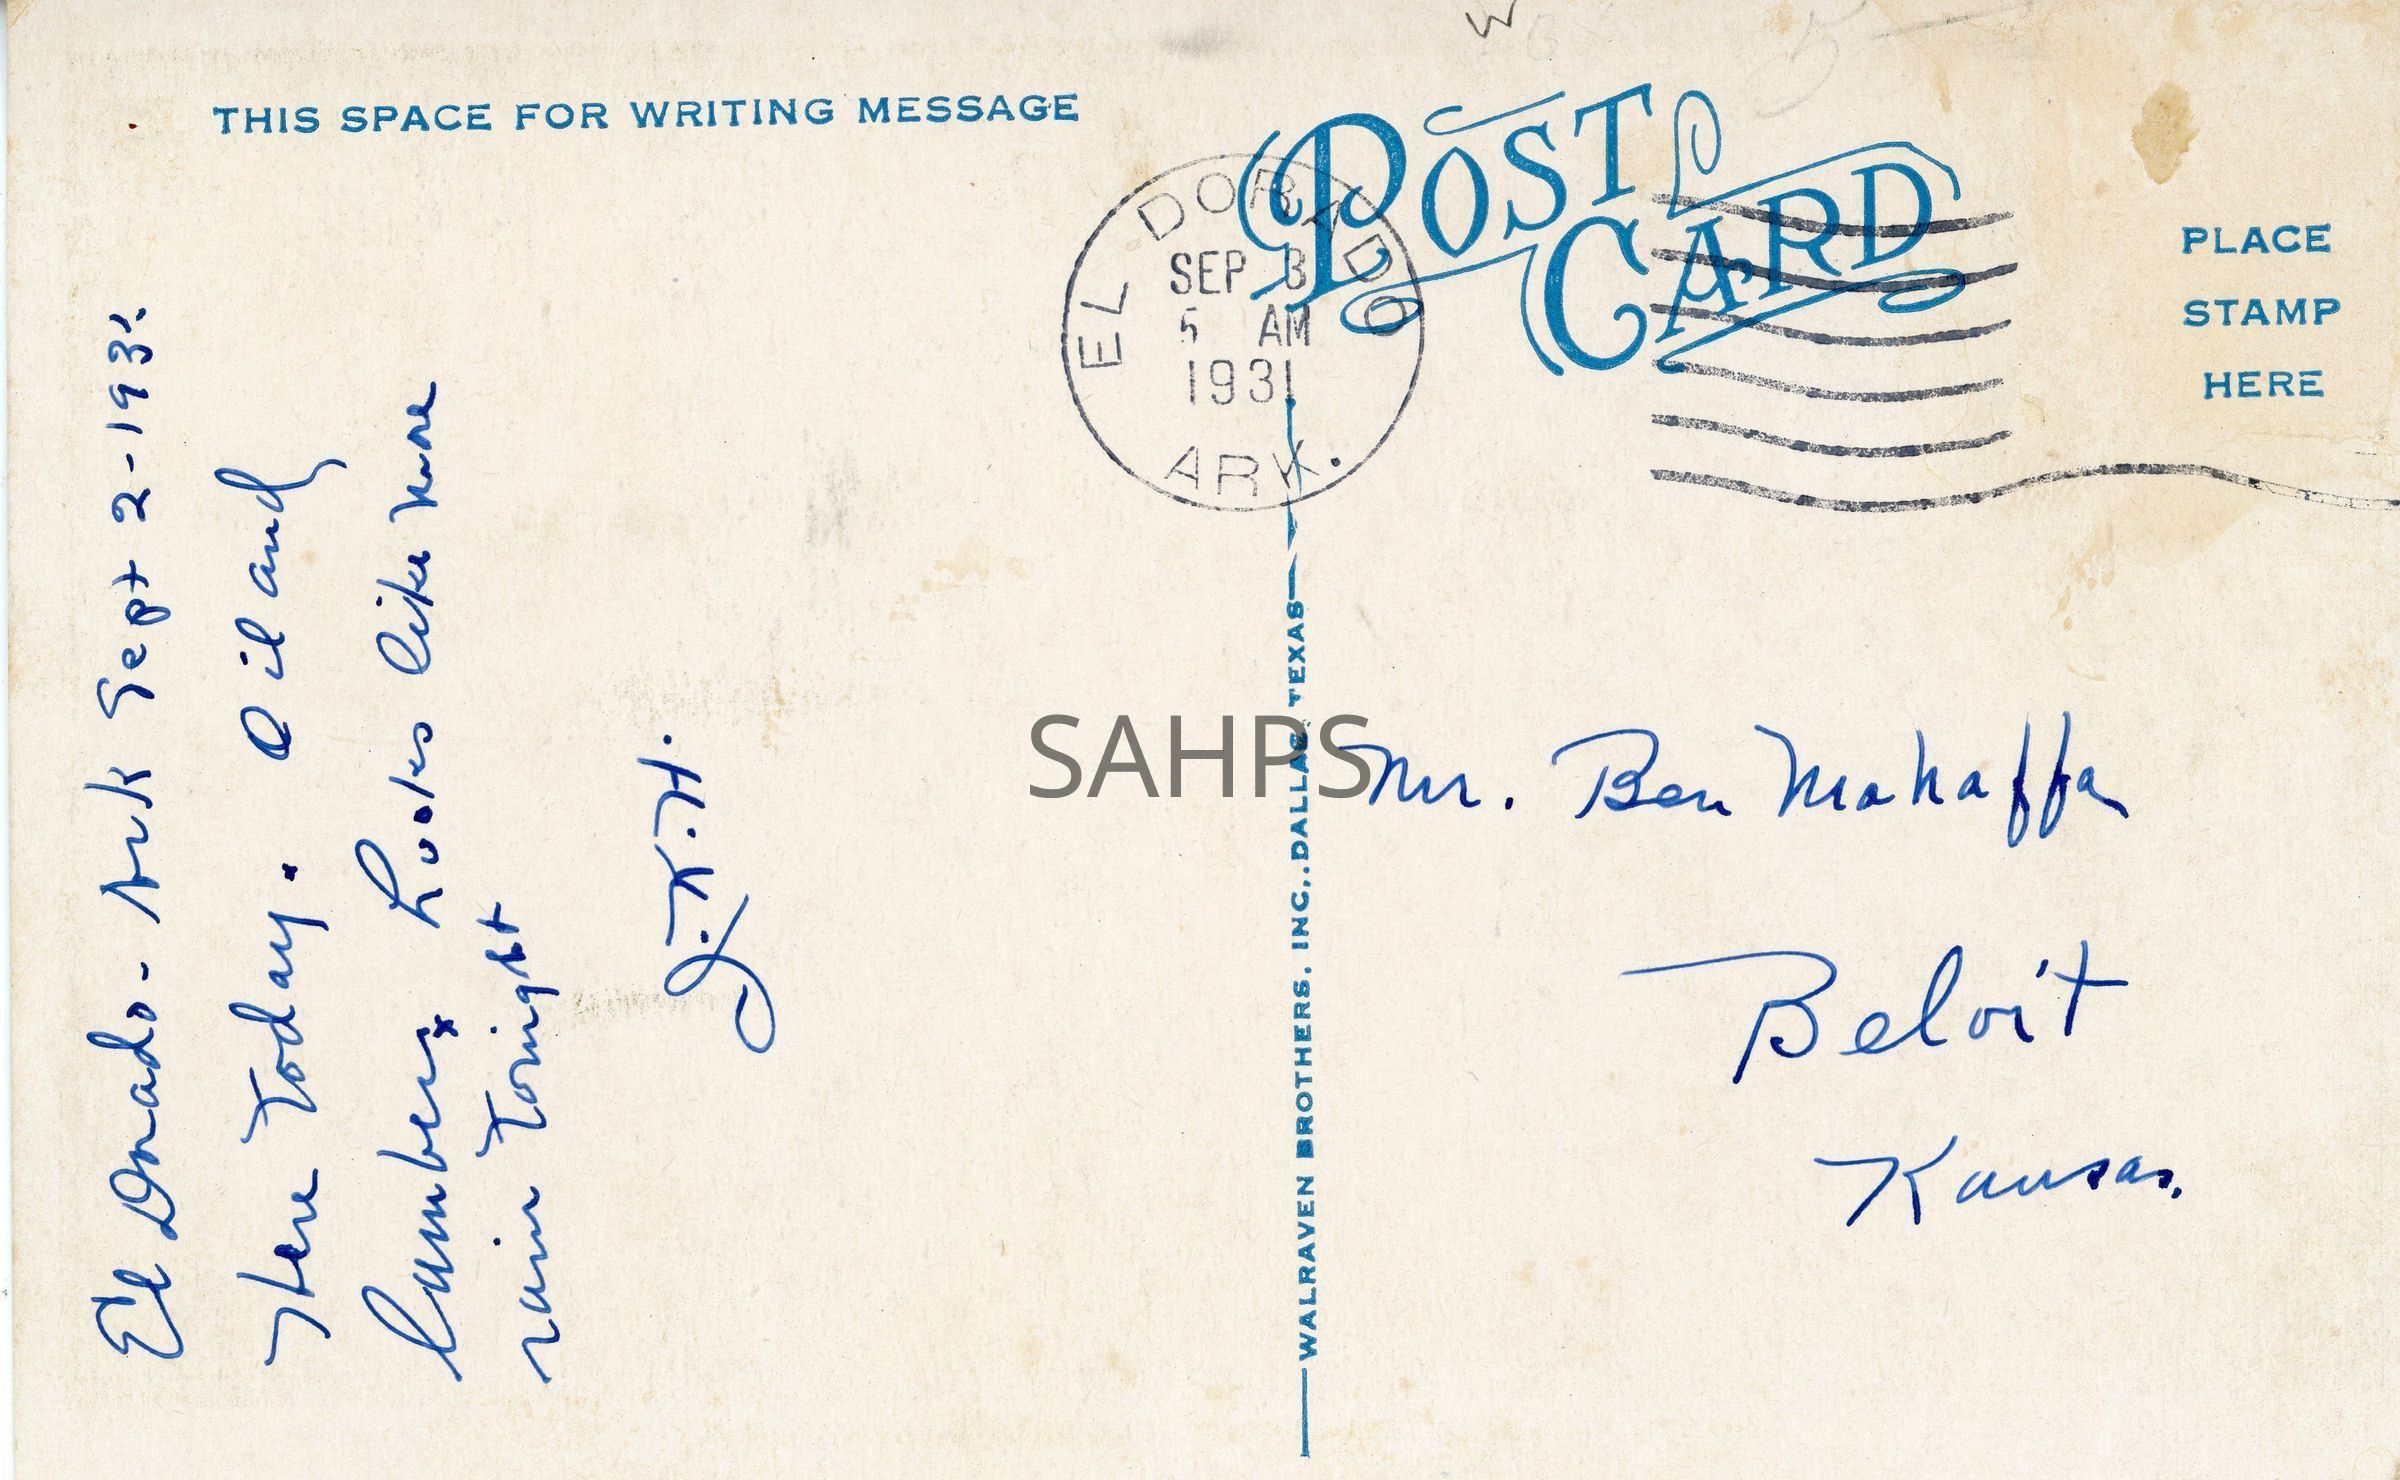 THIS SPACE FOR WRITING MESSAGE
El Dorado- Ark Sept 2-1931
Here Today. Oil and
lumber. Looks like more
rain Tonight
J.K.H.
EL DORADO
SEP 3
5 AM
1931
ARK.
POST CARD
PLACE
STAMP
HERE
WALRAVEN BROTHERS, INC., DALLAS, TEXAS
SAHPS
Mr. Ben Mahaffa
Beloit
Kansas.